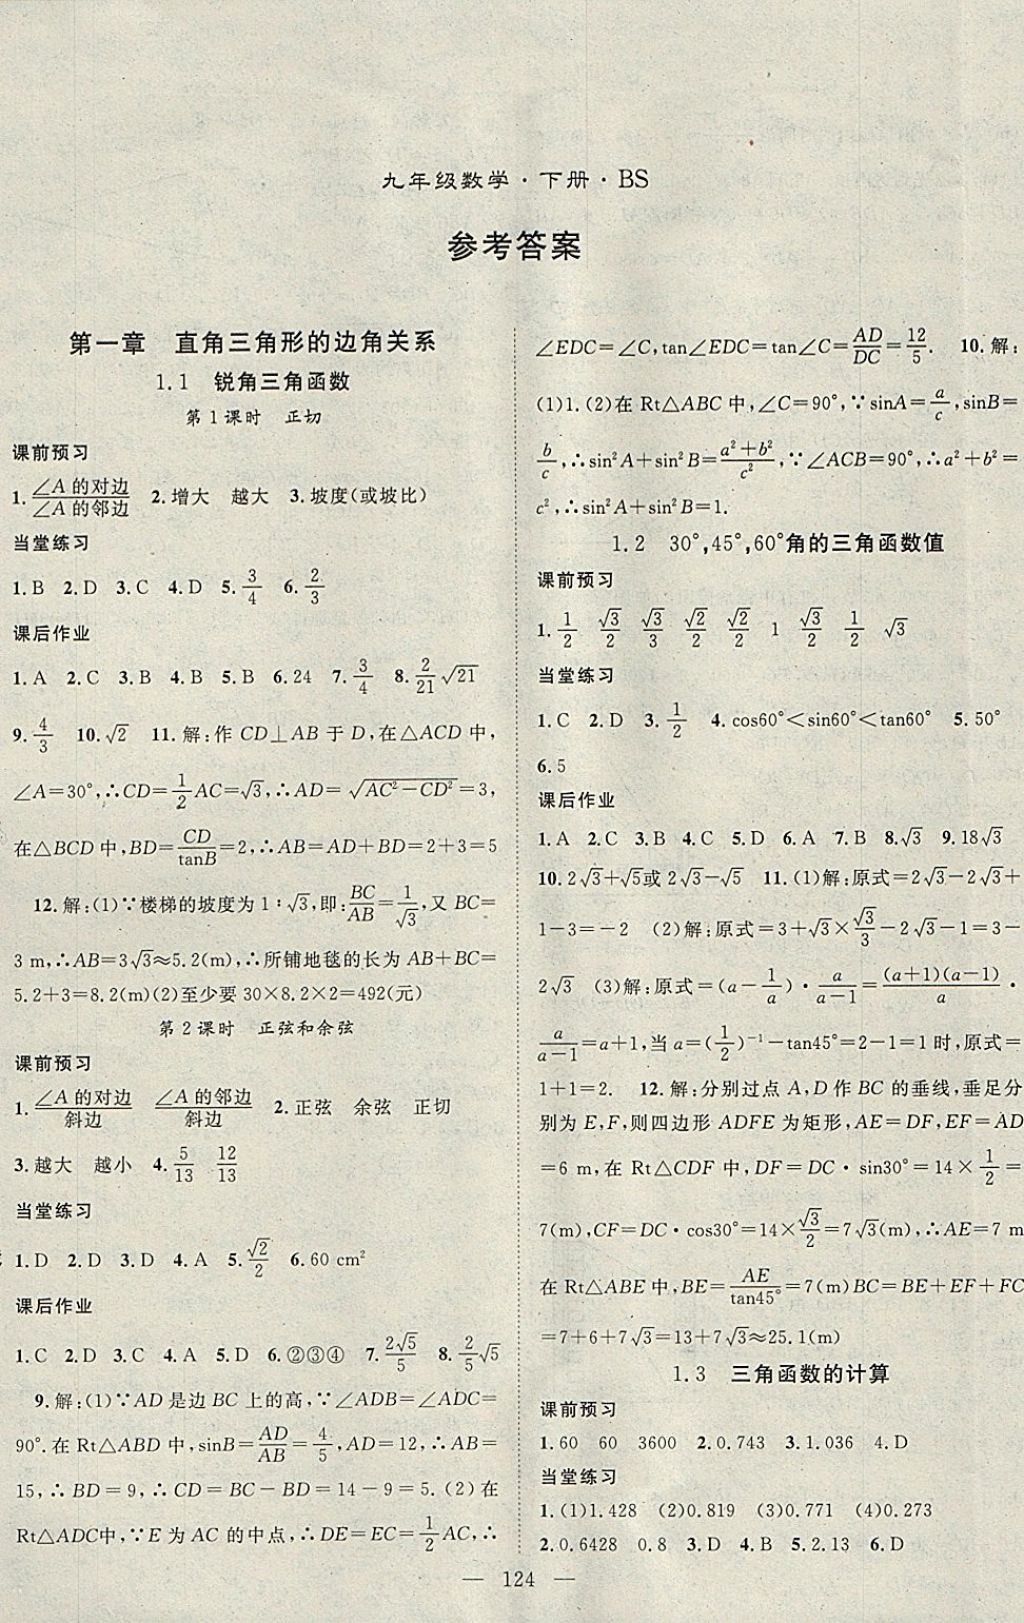 九年级数学·下册·BS
参考答案
第一章 直角三角形的边角关系
1.1 锐角三角函数
第1课时 正切
课前预习
1.∠A的对边/∠A的邻边 2.增大 越大 3.坡度(或坡比)
当堂练习
1.B 2.D 3.C 4.D 5.3/4 6.2/3
课后作业
1.A 2.C 3.B 4.B 5.B 6.24 7.3/4 8.2/21√21
9.4/3 10.√2 11.解:作CD⊥AB于D,在△ACD中,
∠A=30°,∴CD=1/2AC=√3,∴AD=√(AC²-CD²)=3,
在△BCD中,BD=CD/tanB=2,∴AB=AD+BD=2+3=5
12.解:(1)∵楼梯的坡度为1∶√3,即:BC/AB=1/√3,又BC=
3 m,∴AB=3√3≈5.2(m),∴所铺地毯的长为AB+BC=
5.2+3=8.2(m)(2)至少要30×8.2×2=492(元)
第2课时 正弦和余弦
课前预习
1.∠A的对边/斜边 ∠A的邻边/斜边 2.正弦 余弦 正切
3.越大 越小 4.5/13 12/13
当堂练习
1.D 2.D 3.D 4.A 5.√2/2 6.60 cm²
课后作业
1.C 2.D 3.C 4.A 5.D 6.②③④ 7.2√5/5 8.2/5√5
9.解:(1)∵AD是边BC上的高,∵∠ADB=∠ADC=
90°.在Rt△ABD中,sinB=AD/AB=4/5,AD=12,∴AB=
15,∴BD=9,∴CD=BC-BD=14-9=5.(2)在
Rt△ADC中,∵E为AC的中点,∴DE=EC=1/2AC,∴
∠EDC=∠C,tan∠EDC=tan∠C=AD/DC=12/5. 10.解:
(1)1.(2)在Rt△ABC中,∠C=90°,∵sinA=a/c,sinB=
b/c,∴sin²A+sin²B=(a²+b²)/c²,∵∠ACB=90°,∴a²+b²=
c²,∴sin²A+sin²B=1.
1.2 30°,45°,60°角的三角函数值
课前预习
1.1/2 √3/2 √3/3 √2/2 √2/2 1 √3/2 1/2 √3
当堂练习
1.C 2.D 3.1/2 4.cos60°<sin60°<tan60° 5.50°
6.5
课后作业
1.A 2.C 3.B 4.C 5.D 6.A 7.B 8.√3 9.18√3
10.2√3+√5或2√3-√5 11.(1)解:原式=2√3-2√3+
1-3=-2 (2)解:原式=3+√3×√3/3-2√3-1=3-
2√3 (3)解:原式=(a-1/a)·a/(a-1)=(a+1)(a-1)/a·
a/(a-1)=a+1,当a=(1/2)⁻¹-tan45°=2-1=1时,原式=
1+1=2. 12.解:分别过点A,D作BC的垂线,垂足分
别为E,F,则四边形ADFE为矩形,AE=DF,EF=AD
=6 m,在Rt△CDF中,DF=DC·sin30°=14×1/2=
7(m),CF=DC·cos30°=14×√3/2=7√3(m),∴AE=7 m
在Rt△ABE中,BE=AE/tan45°=7(m)BC=BE+EF+FC
=7+6+7√3=13+7√3≈25.1(m)
1.3 三角函数的计算
课前预习
1.60 60 3600 2.0.743 3.1.036 4.D
当堂练习
1.(1)1.428 (2)0.819 (3)0.771 (4)0.273
2.0.6428 0.8 3.D 4.B 5.2.13 6.D
— 124 —